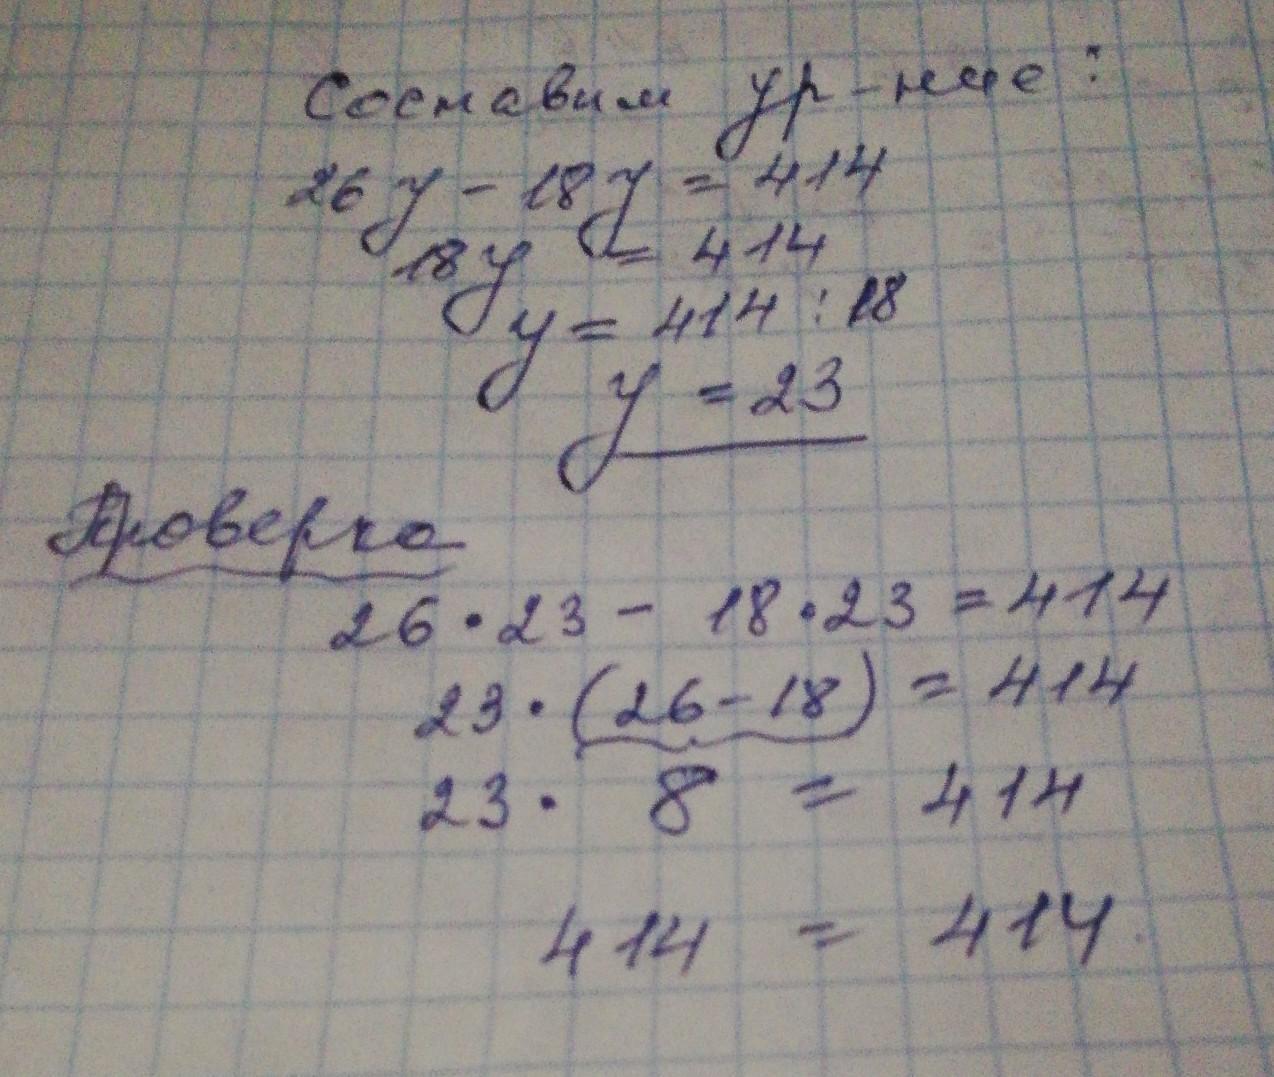 Составим ур-ние:
26y - 18y = 414
18y = 414
y = 414 : 18
y = 23
Проверка
26 • 23 - 18 • 23 = 414
23 • (26 - 18) = 414
23 • 8 = 414
414 = 414